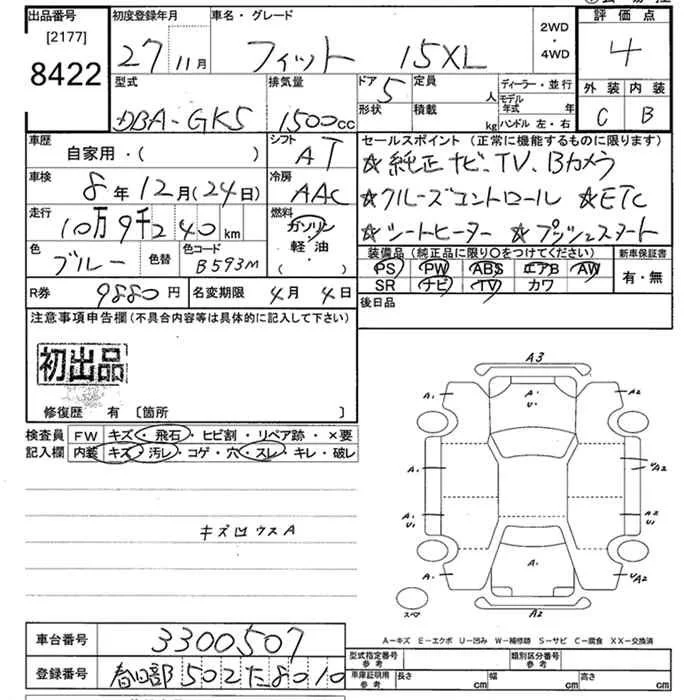 出品番号
[2177]
8422
初度登録年月
27年11月
車名・グレード
フィット 15XL
2WD
・
4WD
評価点
4
外装 内装
C B
型式
DBA-GK5
排気量
1500cc
ドア
5
形状
定員
人
積載
kg
ディーラー・並行
モデル年式 年
ハンドル 左・右
車歴
自家用・( )
シフト
AT
車検
8年12月(24日)
冷房
AAC
走行
10万9千240km
燃料
ガソリン
軽油
( ・ )
色
ブルー
色替
色コード
B593M
セールスポイント(正常に機能するものに限ります)
☆純正ナビ、TV、Bカメラ
☆クルーズコントロール ☆ETC
☆シートヒーター ☆プッシュスタート
装備品(純正品に限り○をつけてください)
PS PW ABS エアB AW
SR ナビ TV カワ
新車保証書
有・無
R券
9880円
名変期限
4月4日
後日品
注意事項申告欄(不具合内容等は具体的に記入して下さい)
初出品
修復歴 有 〔箇所 〕
検査員記入欄
FW キズ・飛石・ヒビ割・リペア跡・×要
内装 キズ・汚レ・コゲ・穴・スレ・キレ・破レ
キズ凹ウスA
A3
A・ A・ U・ A・
A・ U・A2
A・ U1 A2 U1
A・ A・ UA2
スペア
A2
A-キズ E-エクボ U-凹み W-補修跡 S-サビ C-腐食 XX-交換済
車台番号
3300507
登録番号
春日部502た8010
型式指定番号
参考
類別区分番号
参考
車庫証明用
参考
長さ cm 幅 cm 高さ cm